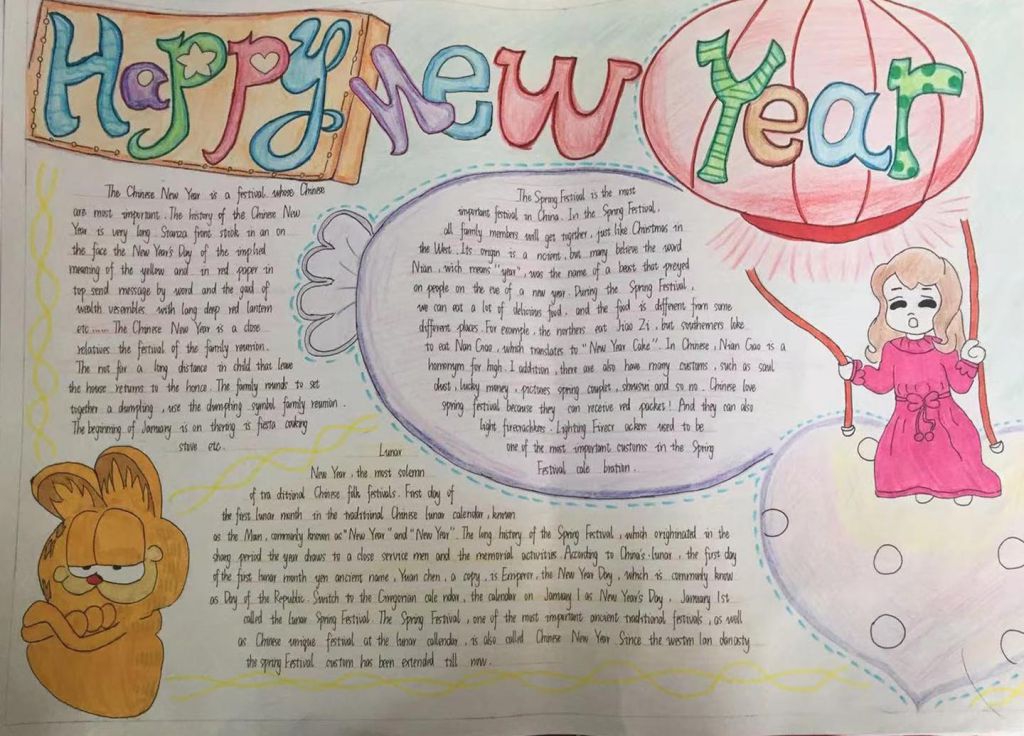 Happy New Year
The Chinese New Year is a festival whose Chinese
are most important. The history of the Chinese New
Year is very long. Stanza front stick in an on
the face the New Year's Day of the implied
meaning of the yellow and in red paper in
top send message by word and the god of
wealth vesembles with long deep red lantern
etc...... The Chinese New Year is a close
relatives the festival of the family reunion.
The not far a long distance in child that leave
the house returns to the honce. The family rounds to set
together a dumpling, use the dumpling symbol family reunion.
The beginning of January is on thering is fiesta cooking
stove etc.
The Spring Festival is the most
important festival in China. In the Spring Festival,
all family members will get together, just like Christmas in
the West. Its origin is a ncient, but many believe the word
Nian, wich means "year", was the name of a beast that preyed
on people on the eve of a new year. During the Spring Festival,
we can eat a lot of delicious food, and the food is different from some
different places. For example, the northers eat Jiao Zi, but southerners like
to eat Nan Gao, which translates to "New Year Cake". In Chinese, Nian Gao is a
homonym for high. I addition, there are also have many customs, such as soul
dust, lucky money, pictures spring couplet, shousui and so no. Chinese love
spring festival because they can receive red packet! And they can also
light firecrackers. Lighting Firecr ackers used to be
one of the most important customs in the Spring
Festival cele bration.
Lunar
New Year, the most solemn
of tra ditional Chinese folk festivals. First day of
the first lunar month in the traditional Chinese lunar calendar, known
as the Man, commonly known as "New Year" and "New Year". The long history of the Spring Festival, which originated in the
shang period the year draws to a close service men and the memorial activities. According to China's lunar, the first day
of the first lunar month yen ancient name, Yuan chen, a copy, is Emperor, the New Year Day, which is commonly know
as Day of the Republic. Switch to the Gregorian cale ndar, the calendar on January 1 as New Year's Day, January 1st
called the lunar Spring Festival. The Spring Festival, one of the most important ancient traditional festivals, as well
as Chinese unique festival at the lunar callendar, is also called Chinese New Year Since the westrn lan danasty
the spring Festival custom has been extended till now.